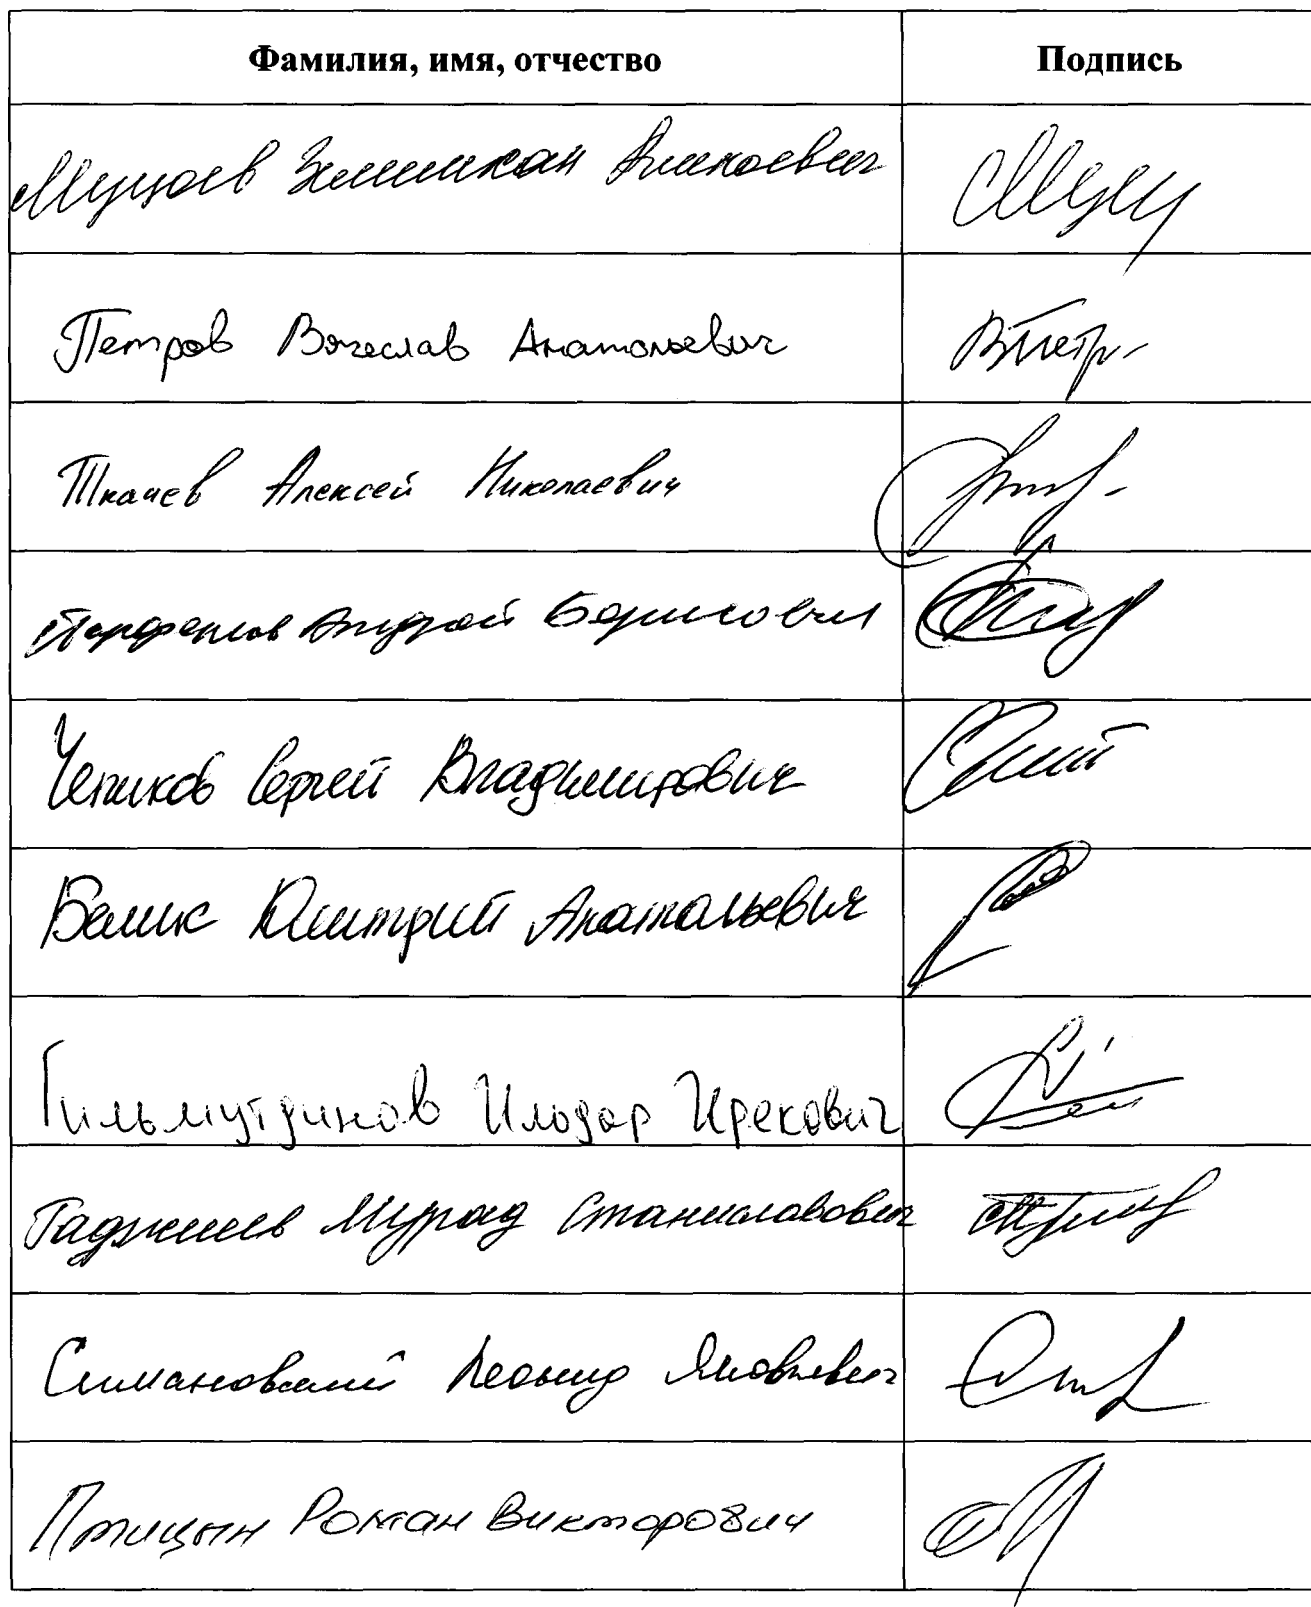 Фамилия, имя, отчество Подпись
Муцоев Зелимхан Аликоевич
Петров Вячеслав Анатольевич
Ткачев Алексей Николаевич
Парфенов Андрей Борисович
Чепиков Сергей Владимирович
Белик Дмитрий Анатольевич
Гильмутдинов Илдар Ирекович
Гаджиев Мурад Станиславович
Симановский Леонид Яковлевич
Птицын Роман Викторович